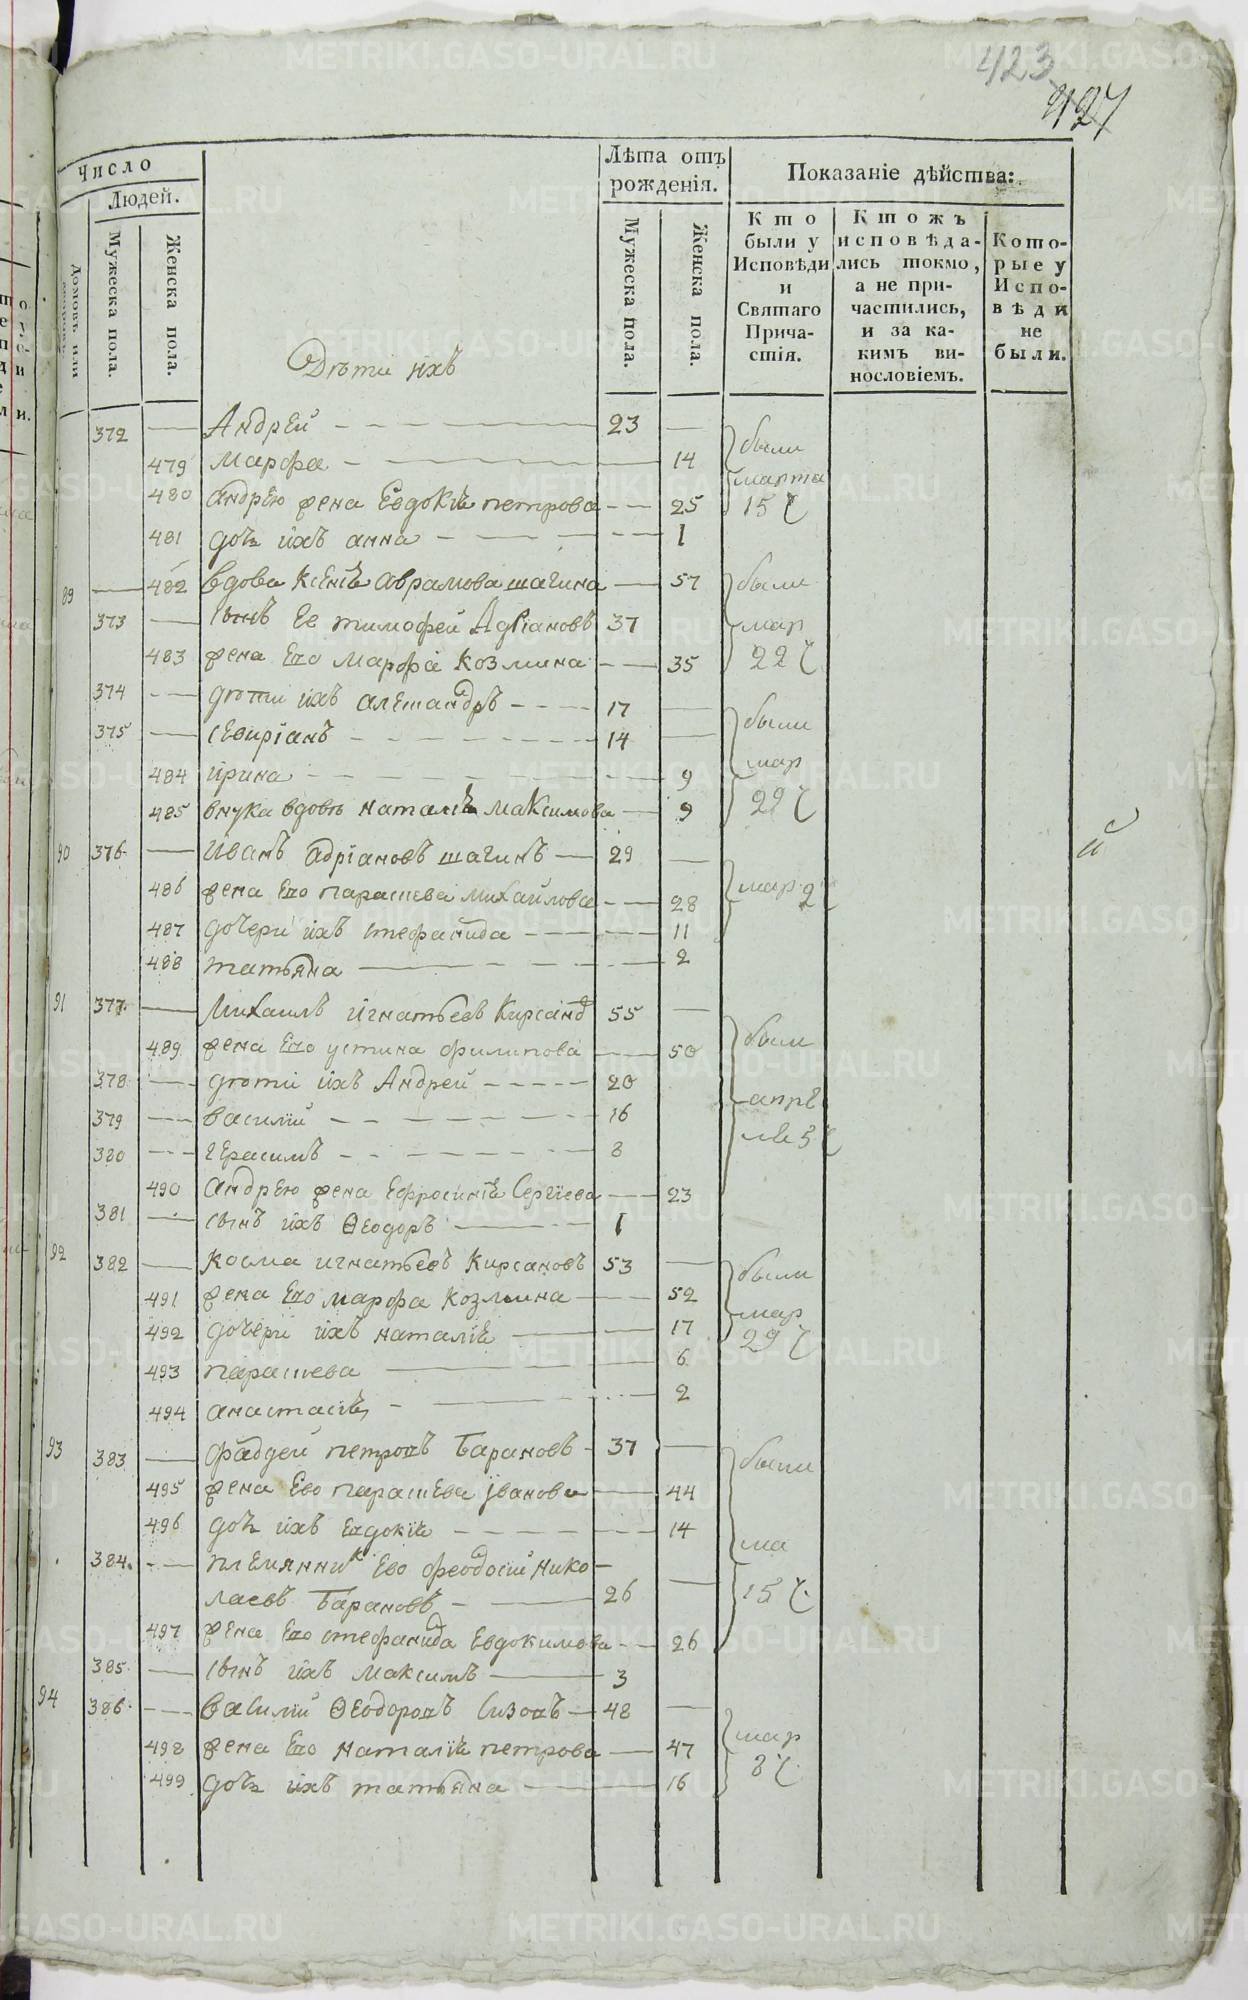 423
427
Число
Людей.
Домовъ или
Мужеска пола.
Женска пола.
Лѣта отъ
рожденія.
Мужеска пола.
Женска пола.
Показаніе дѣйства:
Кто
были у
Исповѣди
и
Святаго
Прича-
стія.
Ктожъ
исповѣда-
лись токмо,
а не при-
частились,
и за ка-
кимъ ви-
нословіемъ.
Кото-
рые у
Испо-
вѣди
не
были.
Дѣти ихъ
372 Андрей 23
479 марфа 14
480 андрею жена Евдокіѣ петрова 25
481 дочь ихъ анна 1
были
марта
15 ч
89 482 вдова Ксеніѣ Аврамова шагина 57
373 сынъ Ее тимофей Адріановъ 37
483 жена Его Марфа Козмина 35
были
мар
22 ч
374 дѣти ихъ алеѯандръ 17
375 севиріанъ 14
484 ирина 9
485 внука вдовѣ Наталіѣ максимова 9
были
мар
29 ч
90 376 Иванъ адріановъ шагинъ 29
486 жена Его парасцева михаилова 28
487 дочери ихъ стефанида 11
488 татьяна 2
мар 2 ч
91 377 Михаилъ Игнатьевъ Кирсанов 55
489 жена Его устина филипова 50
378 дѣти ихъ Андрей 20
379 василий 16
380 герасимъ 8
490 андрею жена Ефросиніѣ Сергіева 23
381 сынъ ихъ Ѳеодоръ 1
были
апре
ля 5 ч
92 382 косма игнатьевъ Кирсановъ 53
491 жена Его марфа Козмина 52
492 дочери ихъ наталіѣ 17
493 парасцева 6
494 анастасіѣ 2
были
мар
29 ч
93 383 фаддей петровъ Барановъ 37
495 жена Ево парасцева Іванова 44
496 дочь ихъ евдокіѣ 14
384 племянник Ево феодосий Нико-
лаевъ Барановъ 26
497 жена Его стефанида Евдокимова 26
385 сынъ ихъ Максимъ 3
были
ма
15 ч
94 386 василий Ѳеодоровъ Сизовъ 48
498 жена Его Наталіѣ петрова 47
499 дочь ихъ татьяна 16
мар
8 ч
й
METRIKI.GASO-URAL.RU